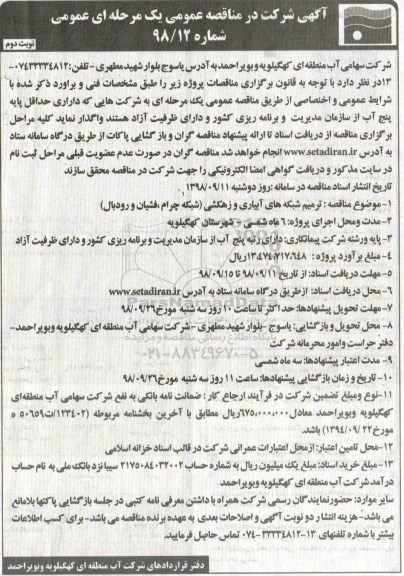 آگهی شرکت در مناقصه عمومی یک مرحله ای عمومی
شماره ۹۸/۱۲
نوبت دوم
شرکت سهامی آب منطقه ای کهگیلویه و بویراحمد به آدرس یاسوج بلوار شهید مطهری - تلفن: ۰۷۴۳۳۳۳۴۸۱۲-
۱۳ در نظر دارد با توجه به قانون برگزاری مناقصات پروژه زیر را طبق مشخصات فنی و براورد ذکر شده با
شرایط عمومی و اختصاصی از طریق مناقصه عمومی یک مرحله ای به شرکت هایی که دارای حداقل پایه
پنج آب از سازمان مدیریت و برنامه ریزی کشور و دارای ظرفیت آزاد هستند واگذار نماید کلیه مراحل
برگزاری مناقصه از دریافت اسناد تا ارائه پیشنهاد مناقصه گران و باز گشایی پاکات از طریق درگاه سامانه ستاد
به آدرس www.setadiran.ir انجام خواهد شد مناقصه گران در صورت عدم عضویت قبلی مراحل ثبت نام
در سایت مذکور و دریافت گواهی امضا الکترونیکی را جهت شرکت در مناقصه محقق سازند
تاریخ انتشار اسناد مناقصه در سامانه: روز دوشنبه ۱۳۹۸/۰۹/۱۱
۱- موضوع مناقصه : ترمیم شبکه های آبیاری و زهکشی (شبکه چرام ،فشیان و رودبال)
۲- مدت و محل اجرای پروژه: ۶ ماه شمسی - شهرستان کهگیلویه
۳- پایه و رشته شرکت پیمانکاری: دارای رتبه پنج آب از سازمان مدیریت و برنامه ریزی کشور و دارای ظرفیت آزاد
۴- مبلغ برآورد پروژه: ۱۳،۴۷۴،۷۱۷،۶۴۸ ریال
۵- مهلت دریافت اسناد: از تاریخ ۹۸/۰۹/۱۱ تا ۹۸/۰۹/۱۵
۶- محل دریافت اسناد: از طریق درگاه سامانه ستاد به آدرس www.setadiran.ir
۷- مهلت تحویل پیشنهادها: حداکثر تا ساعت ۱۰ روز سه شنبه مورخ ۹۸/۰۹/۲۶
۸- محل تحویل و بازگشایی: یاسوج - بلوار شهید مطهری - شرکت سهامی آب منطقه ای کهگیلویه و بویراحمد-
دفتر حراست و امور محرمانه شرکت
۹- مدت اعتبار پیشنهادها: سه ماه شمسی
۱۰- تاریخ و زمان بازگشایی پیشنهادها: ساعت ۱۱ روز سه شنبه مورخ ۹۸/۰۹/۲۶
۱۱- نوع و مبلغ تضمین شرکت در فرآیند ارجاع کار : ضمانت نامه بانکی به نفع شرکت سهامی آب منطقه ای
کهگیلویه و بویراحمد معادل ۶۷۵،۰۰۰،۰۰۰ ریال مطابق با آخرین بخشنامه مربوطه (۱۲۳۴۰۲/ت۵۰۶۵۹ ه
مورخ ۱۳۹۴/۰۹/۲۲)
۱۲- محل تامین اعتبار: از محل اعتبارات عمرانی شرکت در قالب اسناد خزانه اسلامی
۱۳- مبلغ خرید اسناد: مبلغ یک میلیون ریال به شماره حساب ۲۱۷۵۰۸۴۰۳۲۰۰۲ سیبا نزد بانک ملی به نام حساب
درآمد شرکت آب منطقه ای کهگیلویه و بویراحمد
سایر موارد: حضور نمایندگان رسمی شرکت همراه با داشتن معرفی نامه کتبی در جلسه بازگشایی پاکتها بلامانع
می باشد- هزینه انتشار دو نوبت آگهی و اصلاحات بعدی به عهده برنده مناقصه می باشد- برای کسب اطلاعات
بیشتر با شماره تلفنهای ۱۳-۰۷۴-۳۳۳۳۴۸۱۲ تماس حاصل فرمایید.
دفتر قراردادهای شرکت آب منطقه ای کهگیلویه و بویراحمد
ParsNamadData
۰۲۱-۸۸۳۴۹۶۷۰-۵